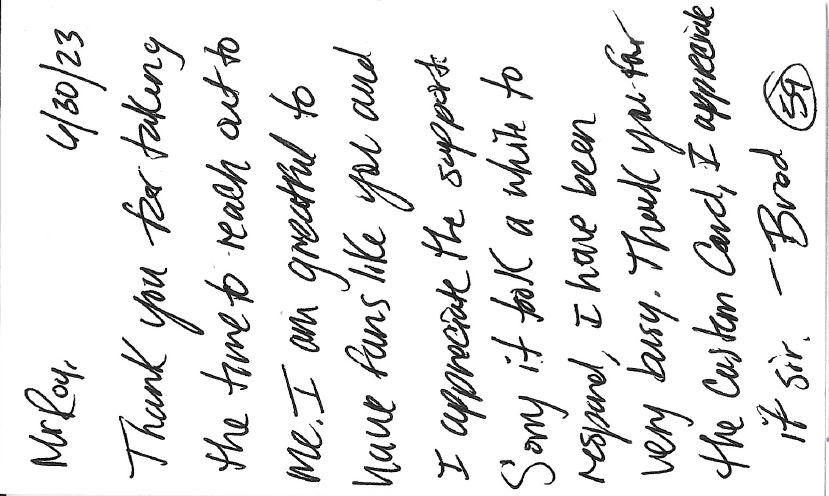 Mr Roy, 4/30/23
Thank you for taking
the time to reach out to
me. I am greatful to
have fans like you and
I appreciate the support.
Sorry it took a while to
respond, I have been
very busy. Thank you for
the custom card, I appreciate
it sir. — Brod 59